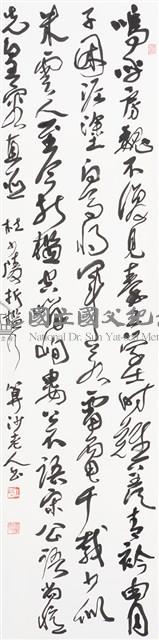 嗚呼房魏不復見秦王學士時難羨青衿胄
子困泥塗白馬將軍若雷電千載少似
朱雲人至今折檻空嶙峋婁公不語宋公語尚憶
先皇容直臣 杜少陵折檻行 算沙老人書
國立國父紀
National Dr. Sun Yat-sen Mem